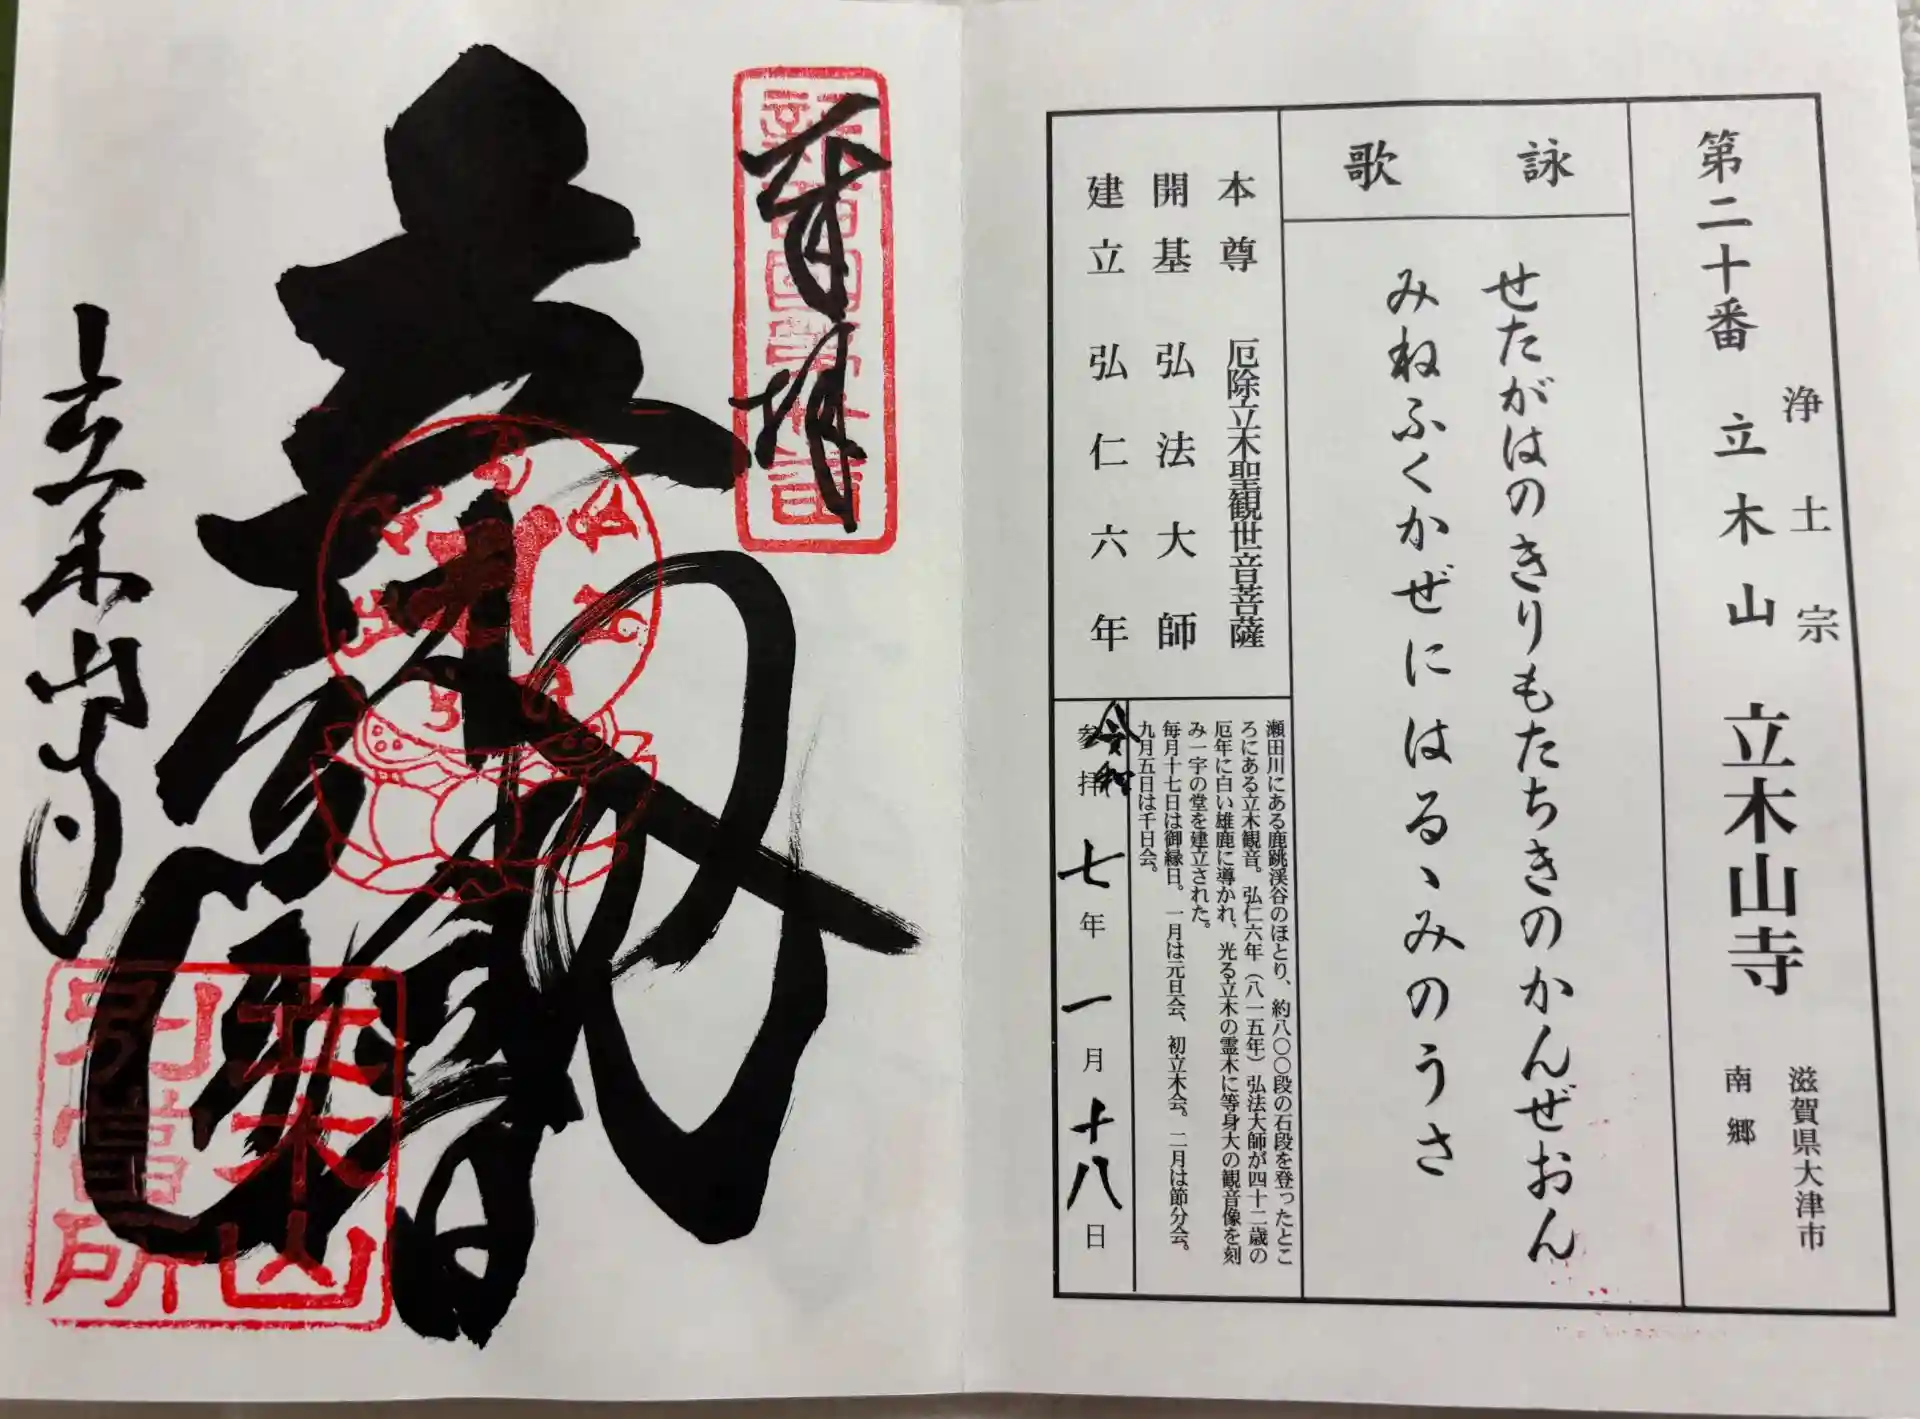 第二十番 立木山 立木山寺
浄土宗
滋賀県大津市
南郷
詠歌
せたがはのきりもたちきのかんぜおん
みねふくかぜにはるゝみのうさ
本尊 厄除立木聖観世音菩薩
開基 弘法大師
建立 弘仁六年
瀬田川にある鹿跳渓谷のほとり、約八〇〇段の石段を登ったとこ
ろにある立木観音。弘仁六年（八一五年）弘法大師が四十二歳の
厄年に白い雄鹿に導かれ、光る立木の霊木に等身大の観音像を刻
み一宇の堂を建立された。
毎月十七日は御縁日。一月は元旦会、初立木会。二月は節分会。
九月五日は千日会。
令和
参拝 七年 一月 十八日
奉拝
新西国第二十番
立木山寺
立木山
別當所